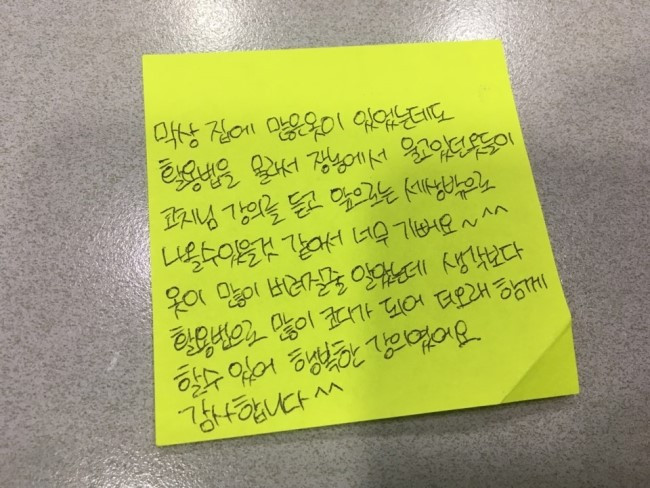 막상 집에 많은옷이 있었는데도
활용법을 몰라서 장농에서 울고있던옷들이
코치님 강의를 듣고 앞으로는 세상밖으로
나올수있을것 같아서 너무 기뻐요~^^
옷이 많이 버려질줄 알았는데 생각보다
활용법으로 많이 코디가 되어 더오래 함께
할수 있어 행복한 강의였어요
감사합니다^^